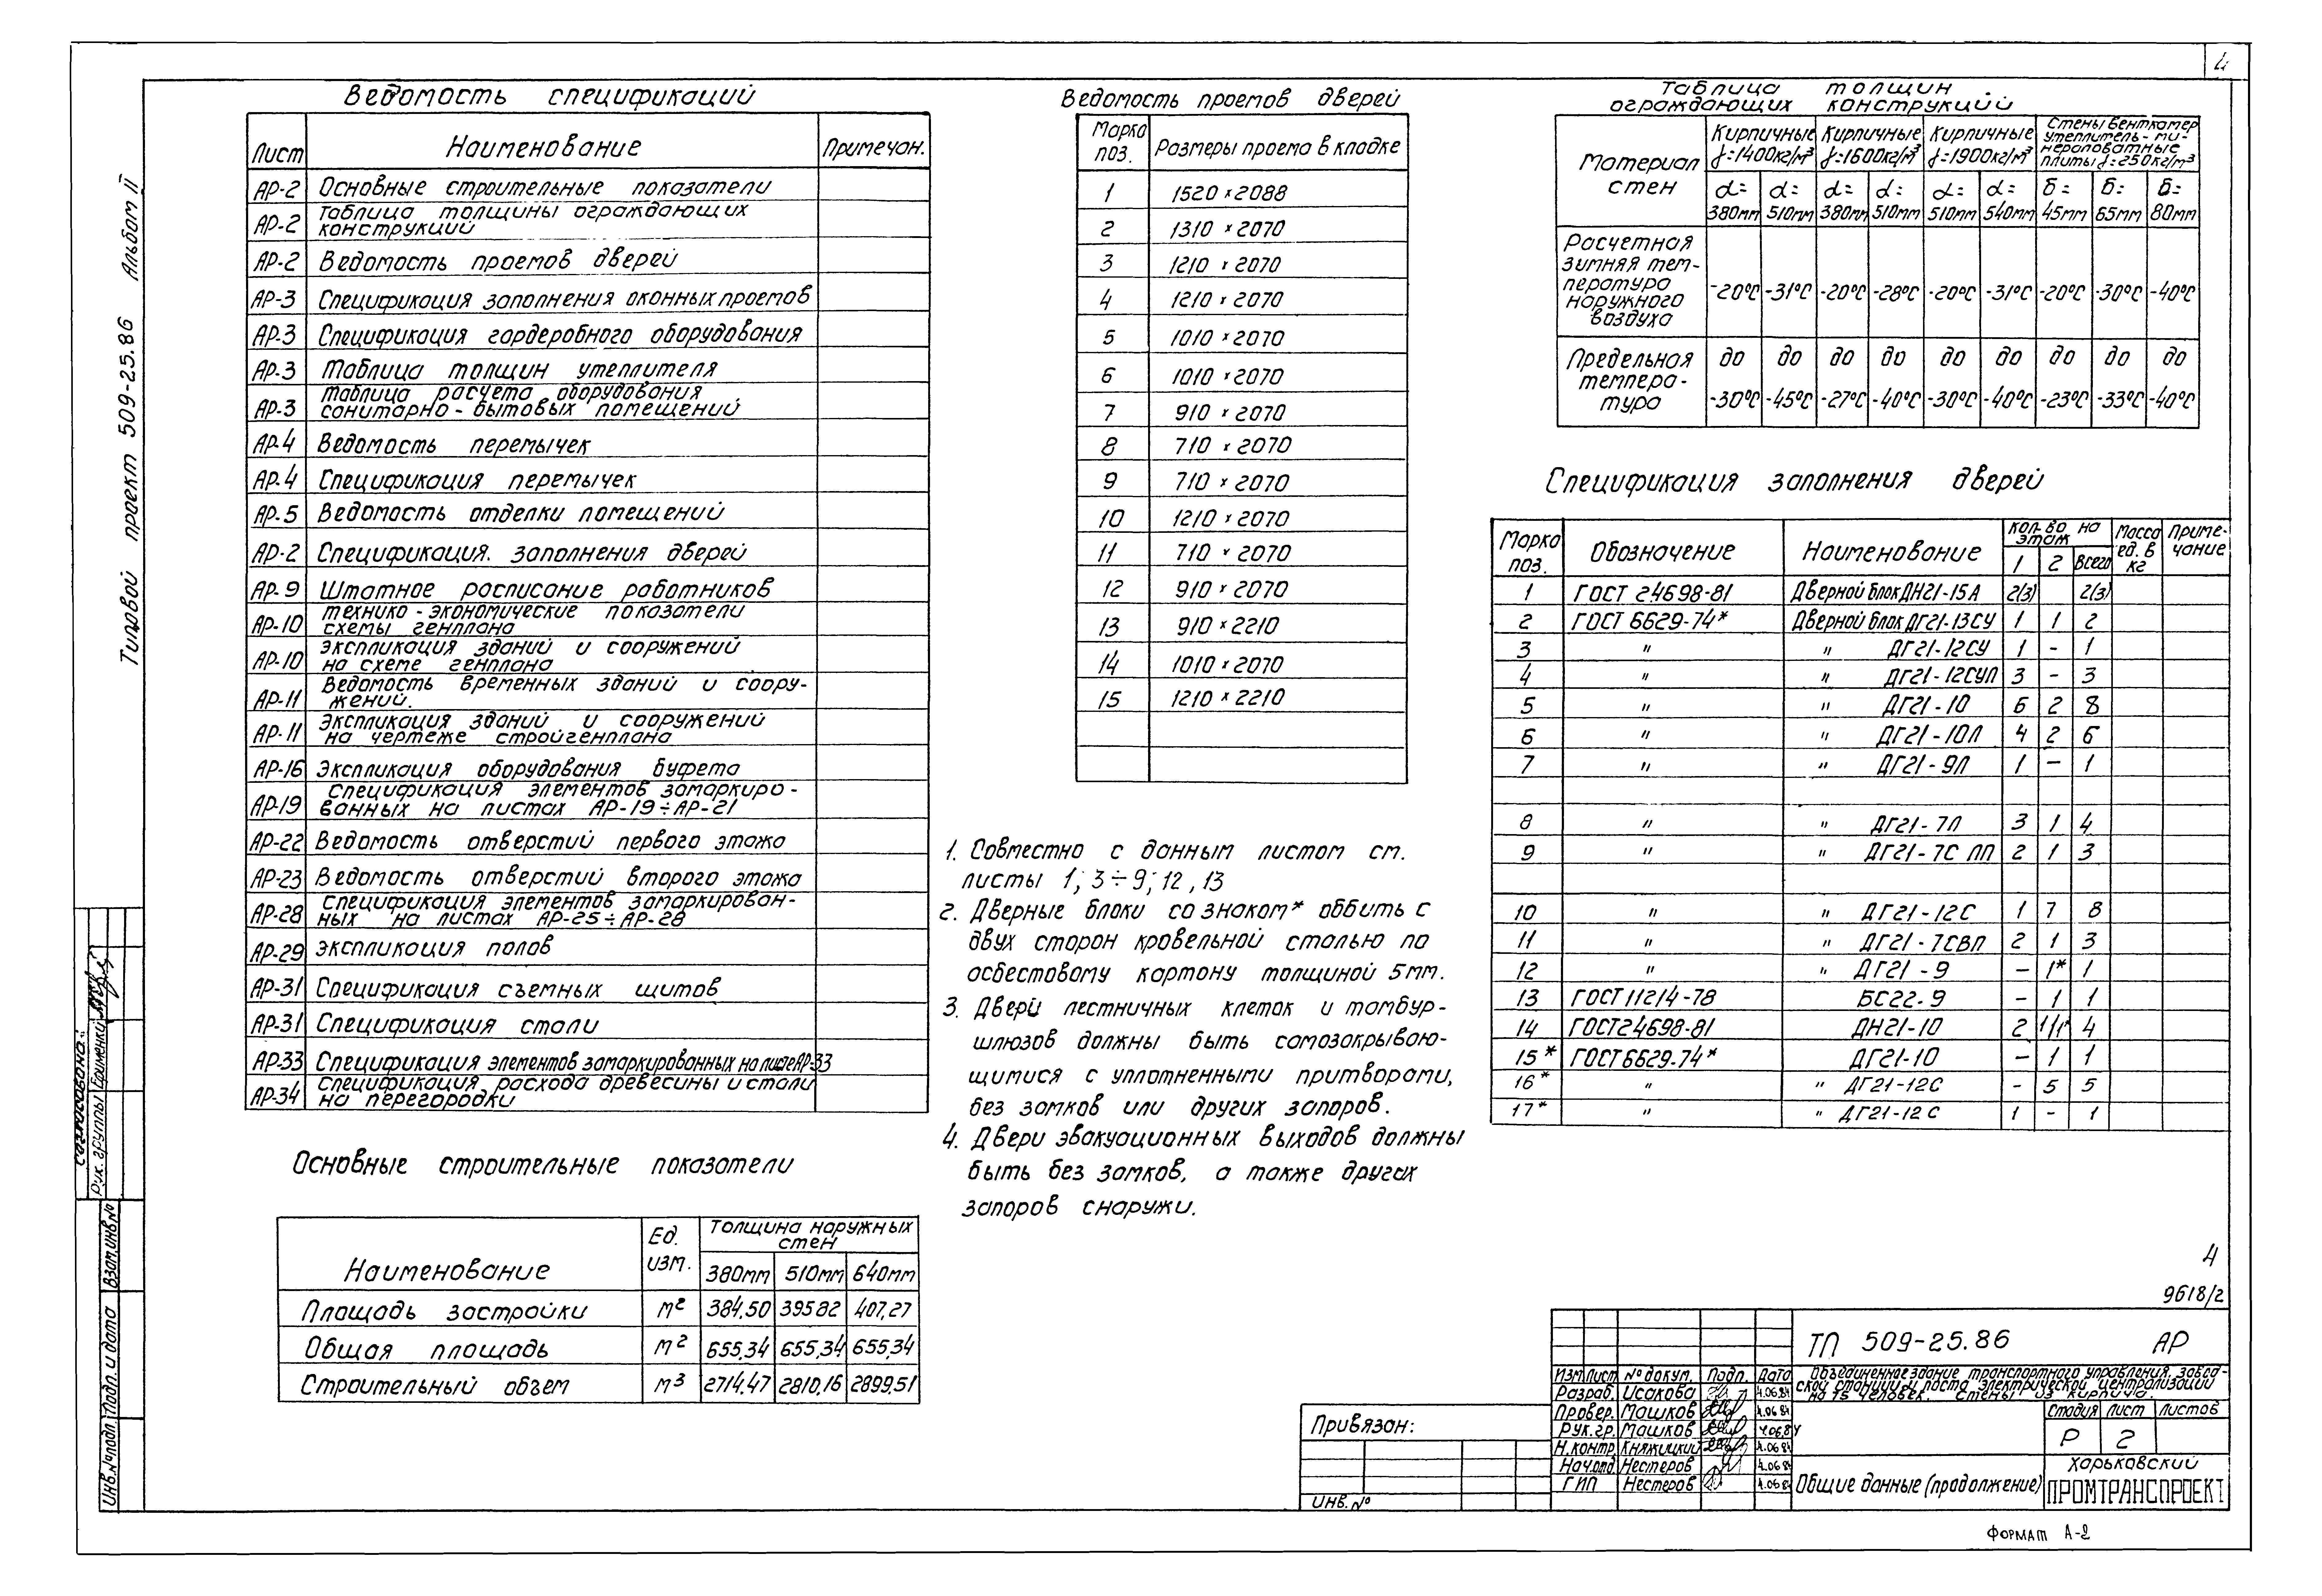 4
Типовой проект 509-25.86 Альбом II
Ведомость спецификаций
Лист Наименование Примечан.
АР-2 Основные строительные показатели
АР-2 Таблица толщины ограждающих
конструкций
АР-2 Ведомость проемов дверей
АР-3 Спецификация заполнения оконных проемов
АР-3 Спецификация гардеробного оборудования
АР-3 Таблица толщин утеплителя
АР-3 Таблица расчета оборудования
санитарно-бытовых помещений
АР-4 Ведомость перемычек
АР-4 Спецификация перемычек
АР-5 Ведомость отделки помещений
АР-2 Спецификация. заполнения дверей
АР-9 Штатное расписание работников
АР-10 технико-экономические показатели
схемы генплана
АР-10 экспликация зданий и сооружений
на схеме генплана
АР-11 Ведомость временных зданий и соору-
жений.
АР-11 экспликация зданий и сооружений
на чертеже стройгенплана
АР-16 Экспликация оборудования буфета
АР-19 Спецификация элементов замаркиро-
ванных на листах АР-19÷АР-21
АР-22 Ведомость отверстий первого этажа
АР-23 Ведомость отверстий второго этажа
АР-28 Спецификация элементов замаркирован-
ных на листах АР-25÷АР-28
АР-29 экспликация полов
АР-31 Спецификация съемных щитов
АР-31 Спецификация стали
АР-33 Спецификация элементов замаркированных на листе АР-33
АР-34 Спецификация расхода древесины и стали
на перегородки
Основные строительные показатели
Наименование Ед. изм. Толщина наружных стен
380мм 510мм 640мм
Площадь застройки м² 384.50 395.82 407,27
Общая площадь м² 655.34 655,34 655,34
Строительный объем м³ 2714.47 2810,16 2899,51
Ведомость проемов дверей
Марка поз. Размеры проема в кладке
1 1520×2088
2 1310×2070
3 1210×2070
4 1210×2070
5 1010×2070
6 1010×2070
7 910×2070
8 710×2070
9 710×2070
10 1210×2070
11 710×2070
12 910×2070
13 910×2210
14 1010×2070
15 1210×2210
1. Совместно с данным листом см.
листы 1; 3÷9; 12, 13
2. Дверные блоки со знаком* оббить с
двух сторон кровельной сталью по
асбестовому картону толщиной 5мм.
3. Двери лестничных клеток и тамбур-
шлюзов должны быть самозакрываю-
щимися с уплотненными притворами,
без замков или других запоров.
4. Двери эвакуационных выходов должны
быть без замков, а также других
запоров снаружи.
Таблица толщин
ограждающих конструкций
Материал стен Кирпичные γ=1400кг/м³ Кирпичные γ=1600кг/м³ Кирпичные γ=1900кг/м³ Стены венткамер утеплитель-ми-
нераловатные плиты γ=250кг/м³
d= 380мм d= 510мм d= 380мм d= 510мм d= 510мм d= 540мм δ= 45мм δ= 65мм δ= 80мм
Расчетная
зимняя тем-
пература
наружного
воздуха
-20°С -31°С -20°С -28°С -20°С -31°С -20°С -30°С -40°С
Предельная до до до до до до до до до
темпера-
тура -30°С -45°С -27°С -40°С -30°С -40°С -23°С -33°С -40°С
Спецификация заполнения дверей
Марка поз. Обозначение Наименование Кол-во на этаж 1 2 Всего Масса ед. в кг Приме-
чание
1 ГОСТ 24698-81 Дверной блок ДН21-15А 2(3) 2(3)
2 ГОСТ 6629-74* Дверной блок ДГ21-13СУ 1 1 2
3 " " ДГ21-12СУ 1 - 1
4 " " ДГ21-12СУП 3 - 3
5 " " ДГ21-10 6 2 8
6 " " ДГ21-10Л 4 2 6
7 " " ДГ21-9Л 1 - 1
8 " " ДГ21-7Л 3 1 4
9 " " ДГ21-7С ЛП 2 1 3
10 " " ДГ21-12С 1 7 8
11 " " ДГ21-7СВП 2 1 3
12 " " ДГ21-9 - 1* 1
13 ГОСТ 11214-78 БС22-9 - 1 1
14 ГОСТ24698-81 ДН21-10 2 4
15* ГОСТ6629-74* ДГ21-10 - 1 1
16* " " ДГ21-12С - 5 5
17* " " ДГ21-12С 1 - 1
4
9618/2
ТП 509-25.86 АР
Объединенное здание транспортного управления, завод-
ской станции и поста электрической централизации
на 75 человек. Стены из кирпича.
Изм Лист № докум. Подп. Дата
Разраб. Исакова 4.06.84
Провер. Машков 4.06.84
Рук.гр. Машков 4.06.84
Н.контр. Княжицкий 4.06.84
Нач.отд. Нестеров 4.06.84
ГИП Нестеров 4.06.84
Стадия Лист Листов
Р 2
Общие данные (продолжение)
Харьковский
ПРОМТРАНСПРОЕКТ
Привязан:
Инв. №
Формат А-2
Согласовано:
Рук. группы Еременко
Взам.инв.№
Подп. и дата
Инв.№ подл.